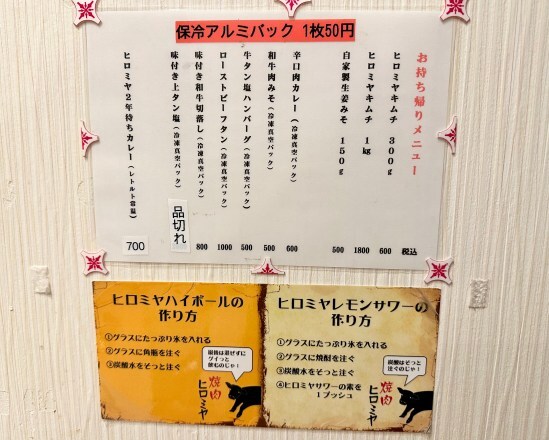 保冷アルミバック 1枚50円
お持ち帰りメニュー
税込
ヒロミヤキムチ 300g 600
ヒロミヤキムチ 1kg 1800
自家製生姜みそ 150g 500
辛口肉カレー(冷凍真空パック) 600
和牛肉みそ(冷凍真空パック) 500
牛タン塩ハンバーグ(冷凍真空パック) 500
ローストビーフタン(冷凍真空パック) 1000
味付き和牛切落し(冷凍真空パック) 800
味付き上タン塩(冷凍真空パック) 品切れ
ヒロミヤ2年待ちカレー(レトルト常温) 700
ヒロミヤハイボールの
作り方
①グラスにたっぷり氷を入れる
②グラスに角瓶を注ぐ
③炭酸水をそっと注ぐ
最後は混ぜずに
グイっと
飲むのじゃ!
焼肉
ヒロミヤ
ヒロミヤレモンサワーの
作り方
①グラスにたっぷり氷を入れる
②グラスに焼酎を注ぐ
③炭酸水をそっと注ぐ
④ヒロミヤサワーの素を
1プッシュ
炭酸はそっと
注ぐのじゃ!
焼肉
ヒロミヤ